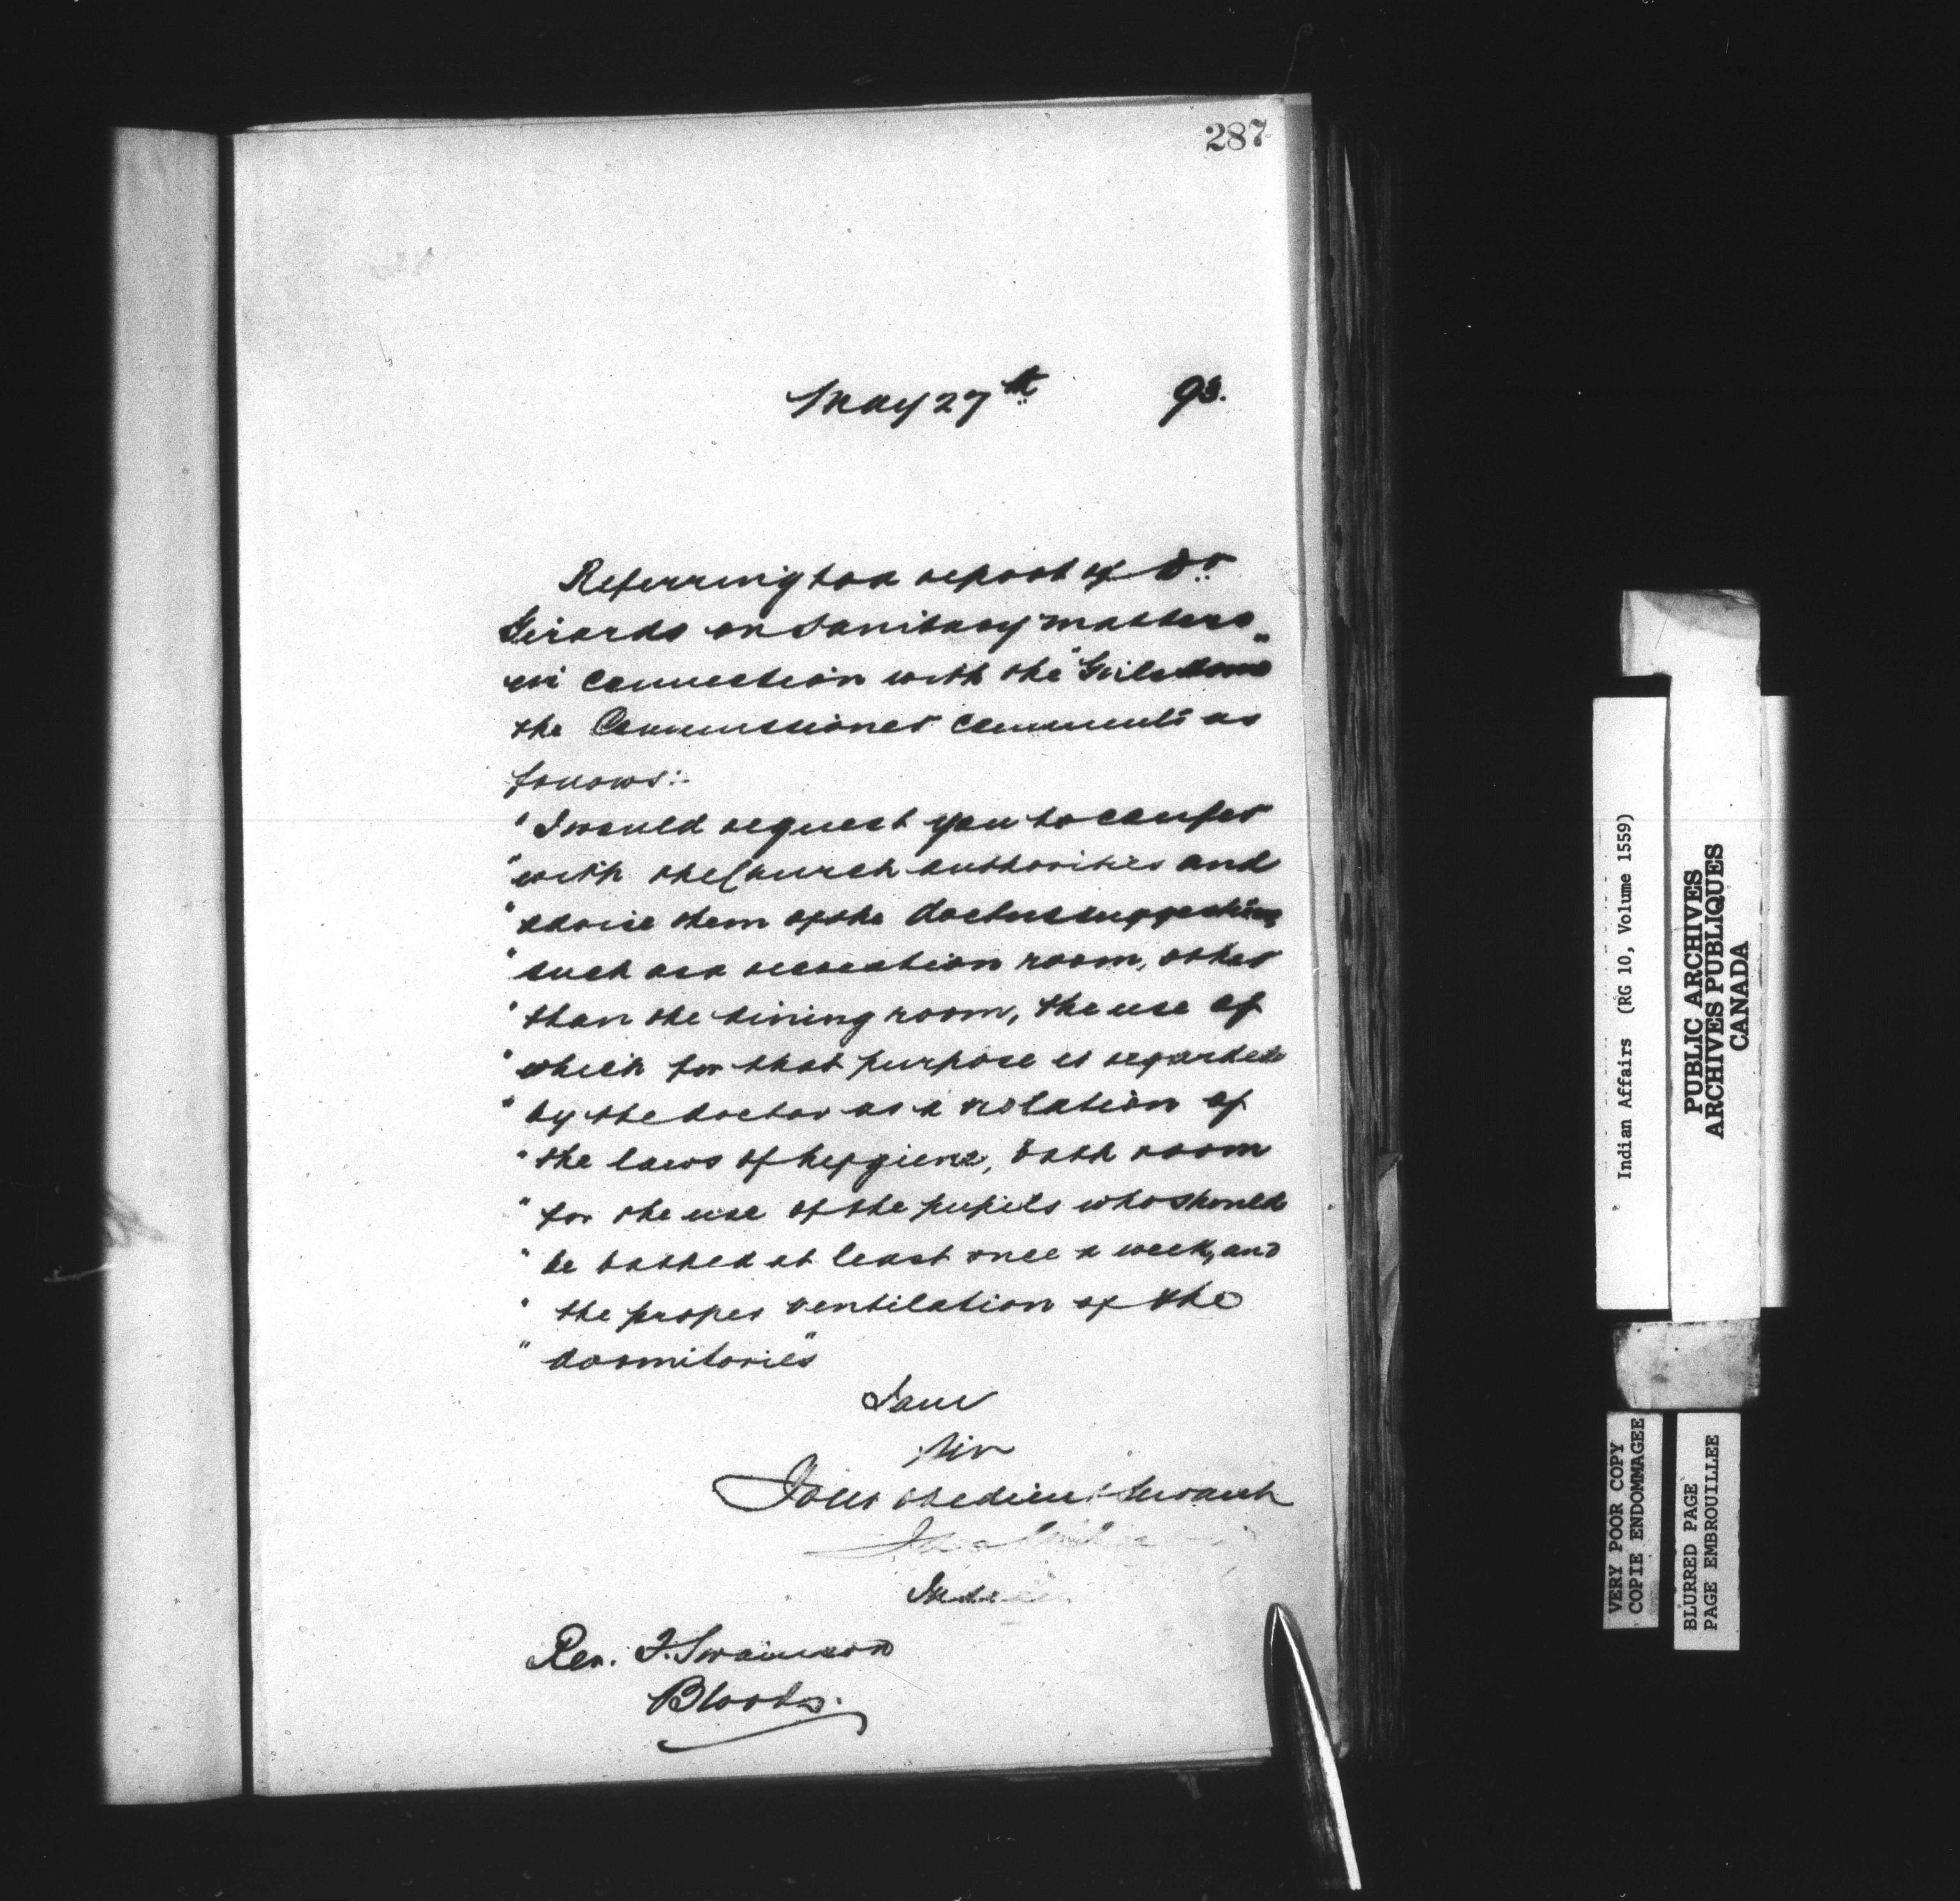 287
May 27th 93.
Referring to a report of Dr
Girards on sanitary matters
in connection with the "Girls Home"
the Commissioner comments as
follows:-
"I would request you to confer
"with the Church authorities and
"advise them of the doctors suggestions
"such as a recreation room, other
"than the dining room, the use of
"which for that purpose is regarded
"by the doctor as a violation of
"the laws of hygiene, bath room
"for the use of the pupils who should
"be bathed at least once a week, and
"the proper ventilation of the
"dormitories"
I am
Sir
Your obedient Servant
Rev. F. Swainson
Bloods.
Indian Affairs (RG 10, Volume 1559)
PUBLIC ARCHIVES
ARCHIVES PUBLIQUES
CANADA
VERY POOR COPY
COPIE ENDOMMAGEE
BLURRED PAGE
PAGE EMBROUILLEE